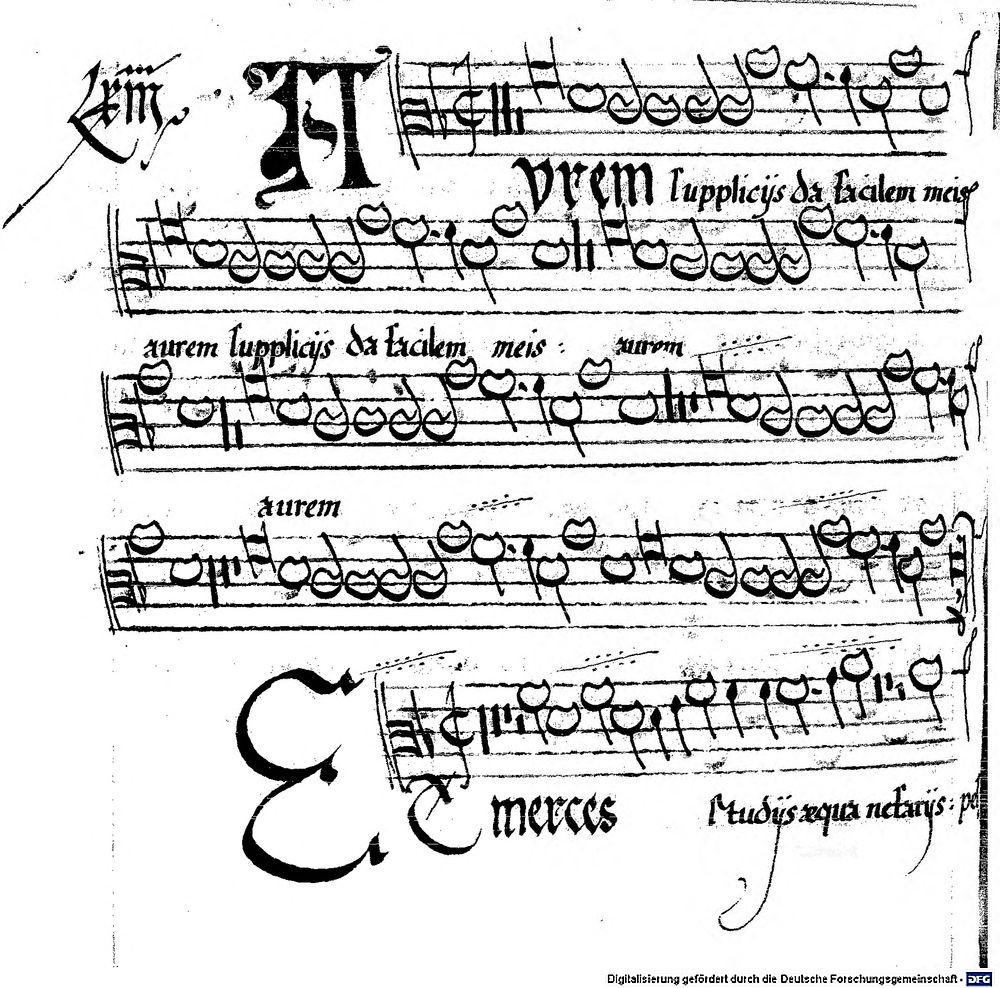 Lxiii
A
vrem supplicijs da facilem meis
aurem supplicijs da facilem meis : aurem
aurem
E
T merces studijs æqua nefarijs : pe
Digitalisierung gefördert durch die Deutsche Forschungsgemeinschaft - DFG